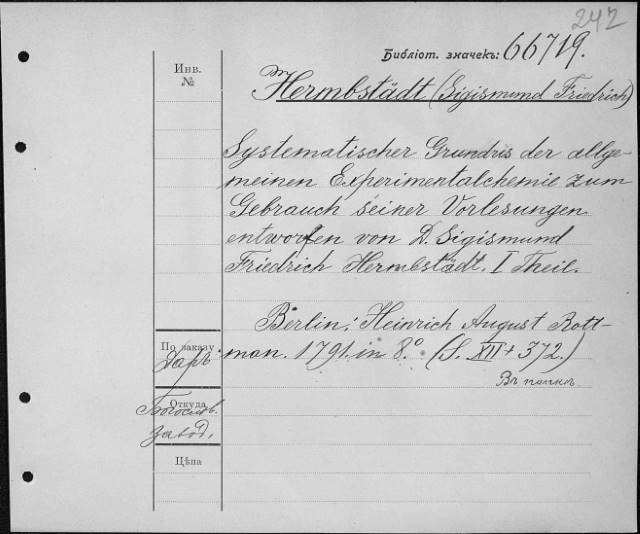 242
Библіот. значекъ: 66719.
Инв.
№
Hermbstädt (Sigismund Friedrich)
Systematischer Grundris der allge-
meinen Experimentalchemie zum
Gebrauch seiner Vorlesungen
entworfen von D. Sigismund
Friedrich Hermbstädt. I Theil.
Berlin: Heinrich August Rott-
man. 1791. in 8.° (S. XII + 372.)
Въ папкѣ
По заказу
Даръ
Откуда
Богослов.
завод.
Цѣна